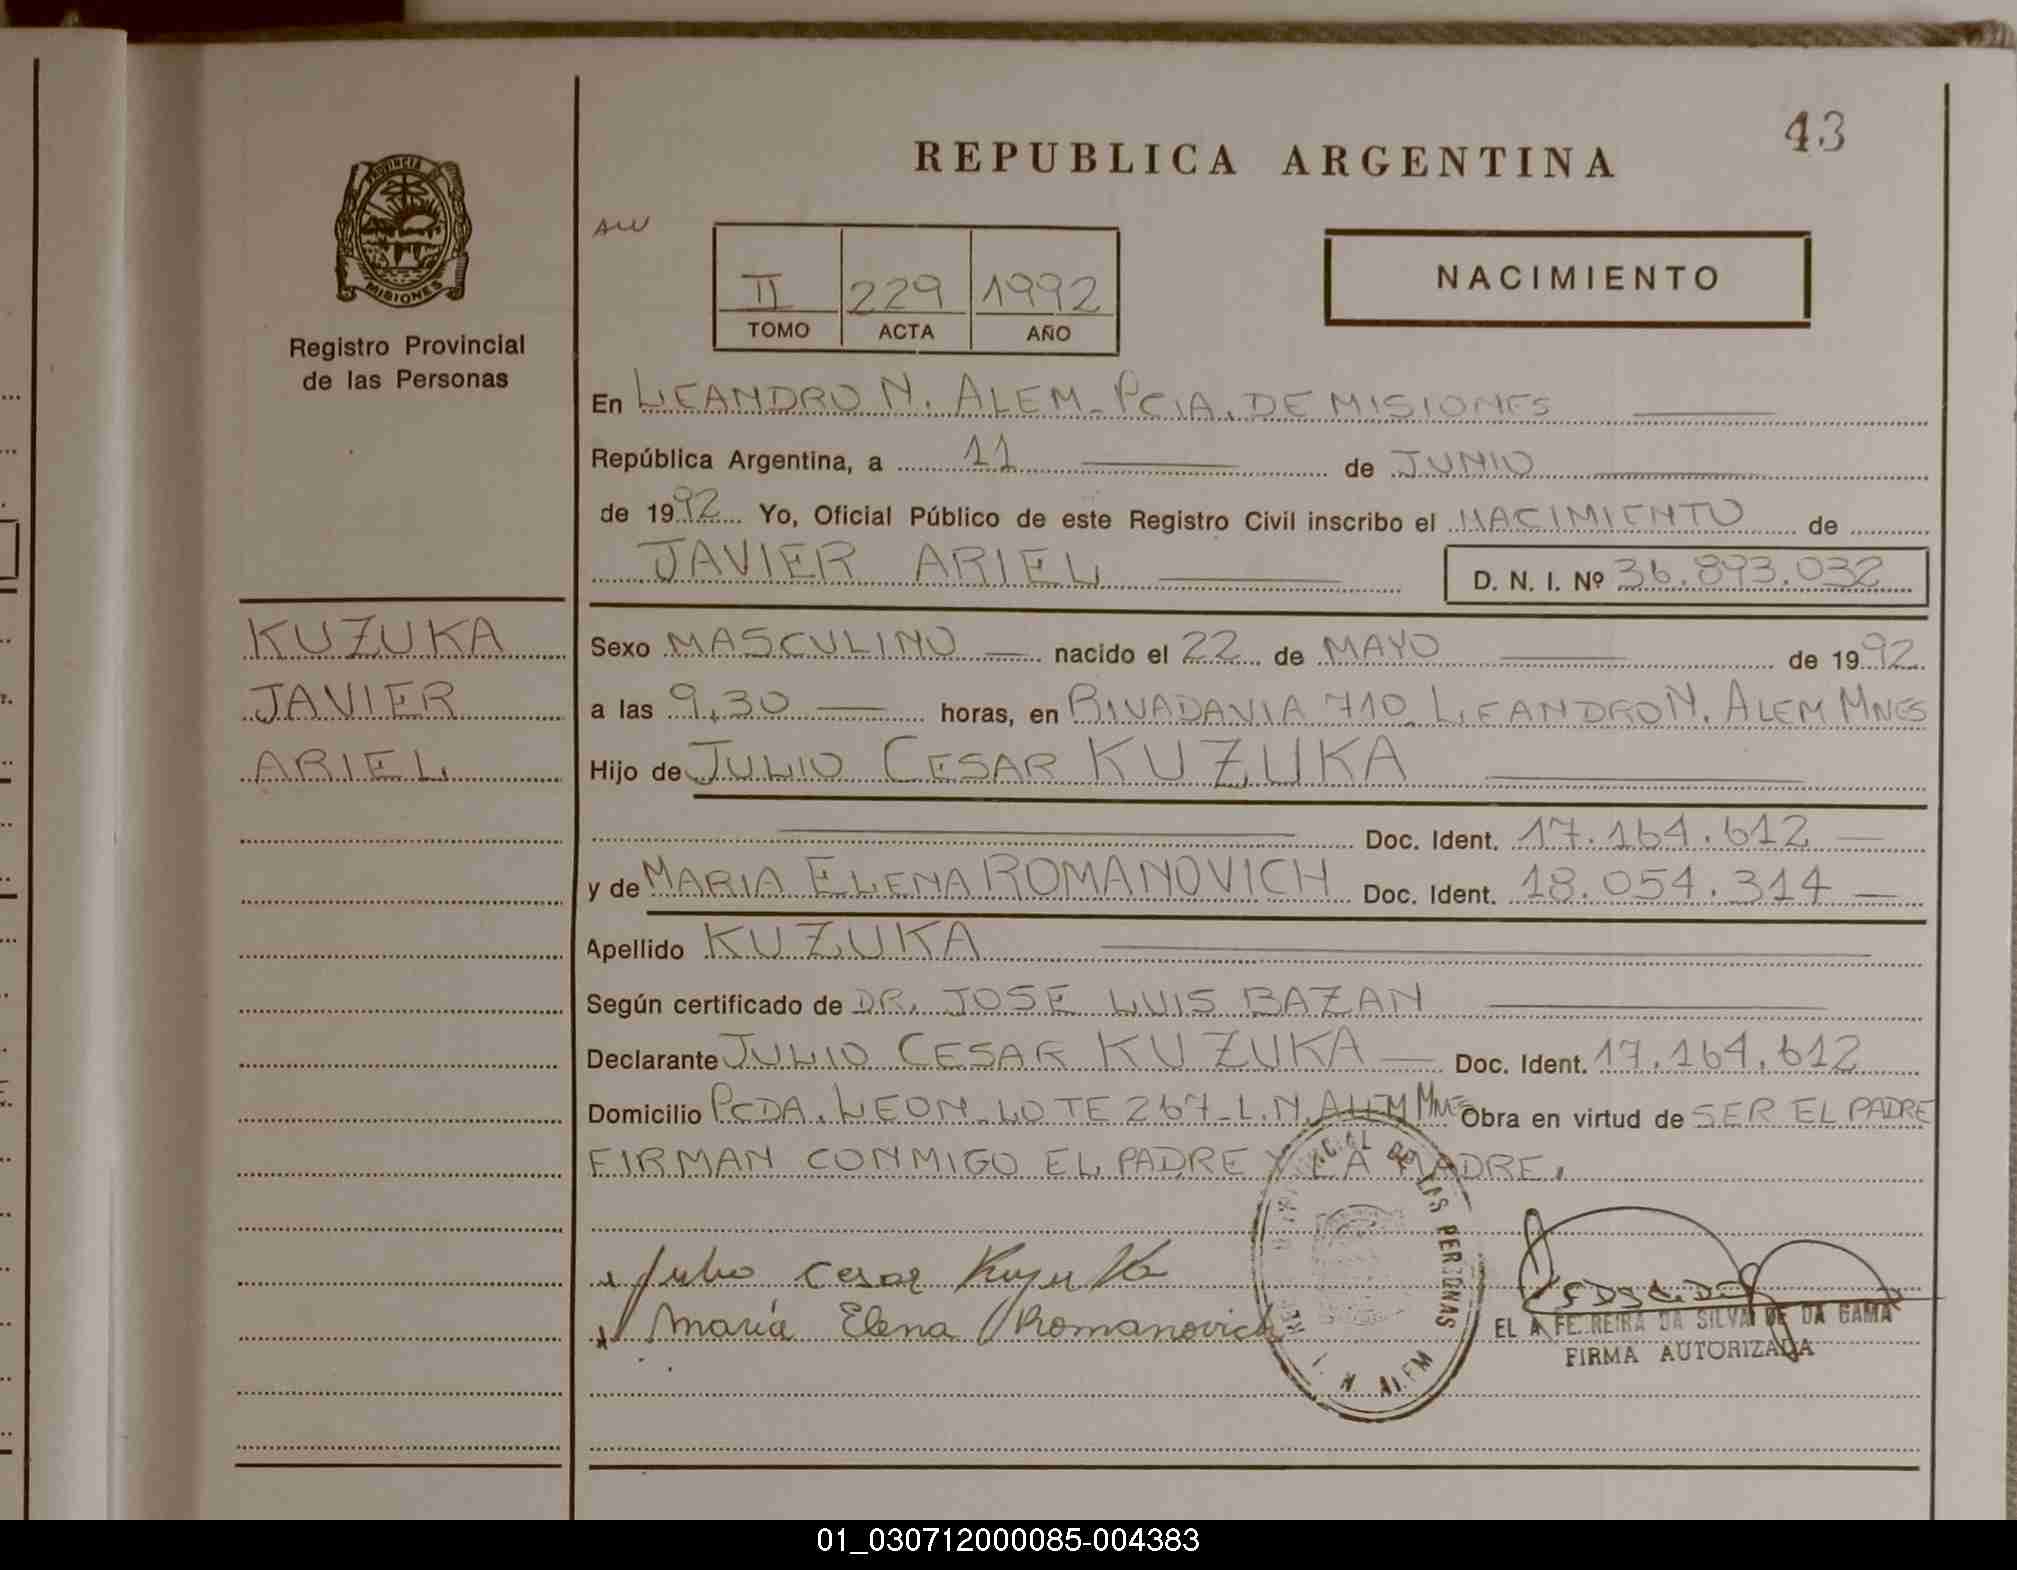 43
REPUBLICA ARGENTINA
PROVINCIA DE
MISIONES
Registro Provincial
de las Personas
II 229 1992
TOMO ACTA AÑO
NACIMIENTO
En LEANDRO N. ALEM - PCIA. DE MISIONES
República Argentina, a 11 de JUNIO
de 1992 Yo, Oficial Público de este Registro Civil inscribo el NACIMIENTO de
JAVIER ARIEL D. N. I. Nº 36.893.032
KUZUKA
JAVIER
ARIEL
Sexo MASCULINO nacido el 22 de MAYO de 1992
a las 9,30 horas, en RIVADAVIA 710. LEANDRO N. ALEM MNES
Hijo de JULIO CESAR KUZUKA
Doc. Ident. 17.164.612
y de MARIA ELENA ROMANOVICH Doc. Ident. 18.054.314
Apellido KUZUKA
Según certificado de DR. JOSE LUIS BAZAN
Declarante JULIO CESAR KUZUKA Doc. Ident. 17.164.612
Domicilio PCDA. LEON - LOTE 267 - L.N. ALEM MNES Obra en virtud de SER EL PADRE
FIRMAN CONMIGO EL PADRE Y LA MADRE.
Julio Cesar Kuzuka
María Elena Romanovich
DE LAS PERSONAS
L. N. ALEM
FERREIRA DA SILVA DE DA GAMA
FIRMA AUTORIZADA
01_030712000085-004383